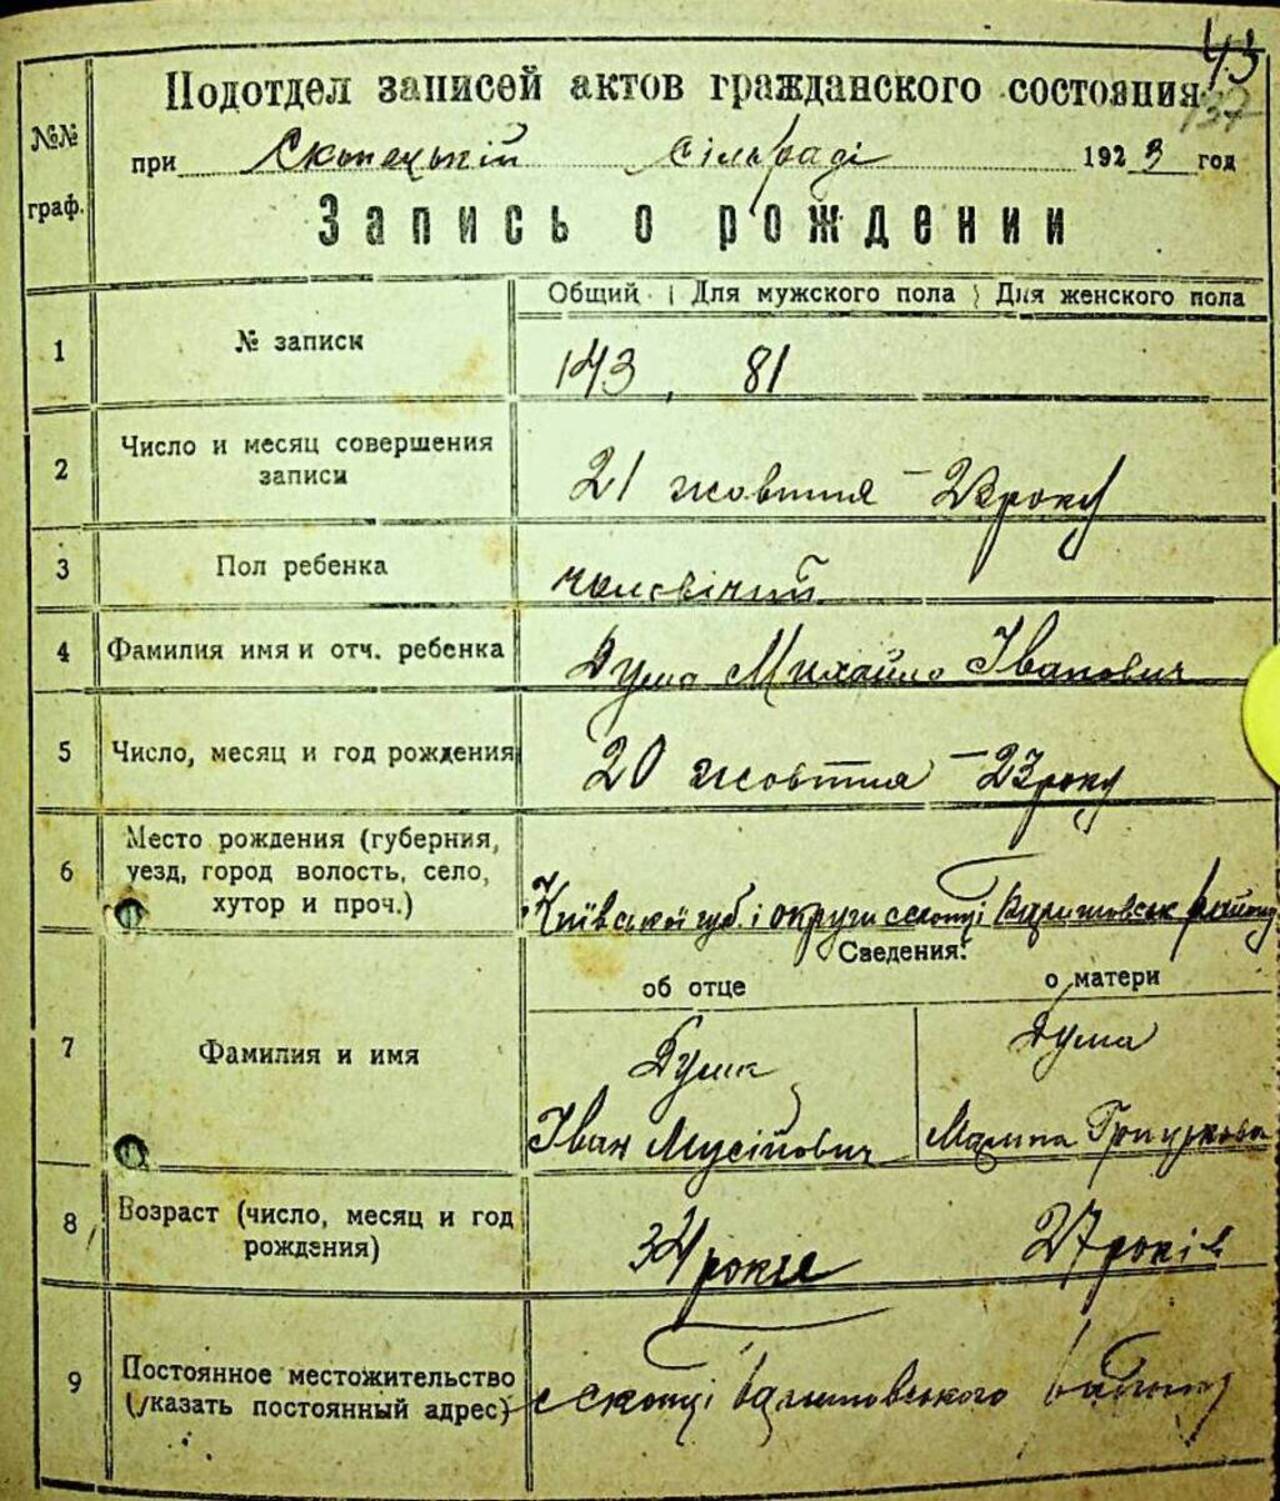 43
137
Подотдел записей актов гражданского состояния
№№ граф.
при Скопецькій сільраді 1923 год
Запись о рождении
Общий Для мужского пола Для женского пола
1 № записи 143 81
2 Число и месяц совершения записи 21 жовтня – 23 року
3 Пол ребенка чоловічий
4 Фамилия имя и отч. ребенка Дума Михайло Іванович
5 Число, месяц и год рождения 20 жовтня – 23 року
6 Место рождения (губерния, уезд, город волость, село, хутор и проч.) Київської губ. і округи с скопці району
Сведения:
об отце о матери
7 Фамилия и имя Дума Дума
Іван Мусійович
8 Возраст (число, месяц и год рождения) 34 роки 27 років
9 Постоянное местожительство (указать постоянный адрес) с скопці району